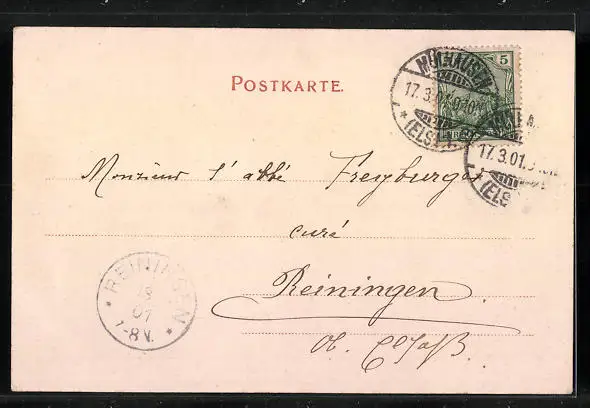 POSTKARTE.
5
MÜLHAUSEN
17.3.01.
(ELS
17.3.01.
(ELS
Monsieur l'abbé Freyburger
curé
Reiningen
Ob. Elsaß.
REININGEN
18
01
7-8V.